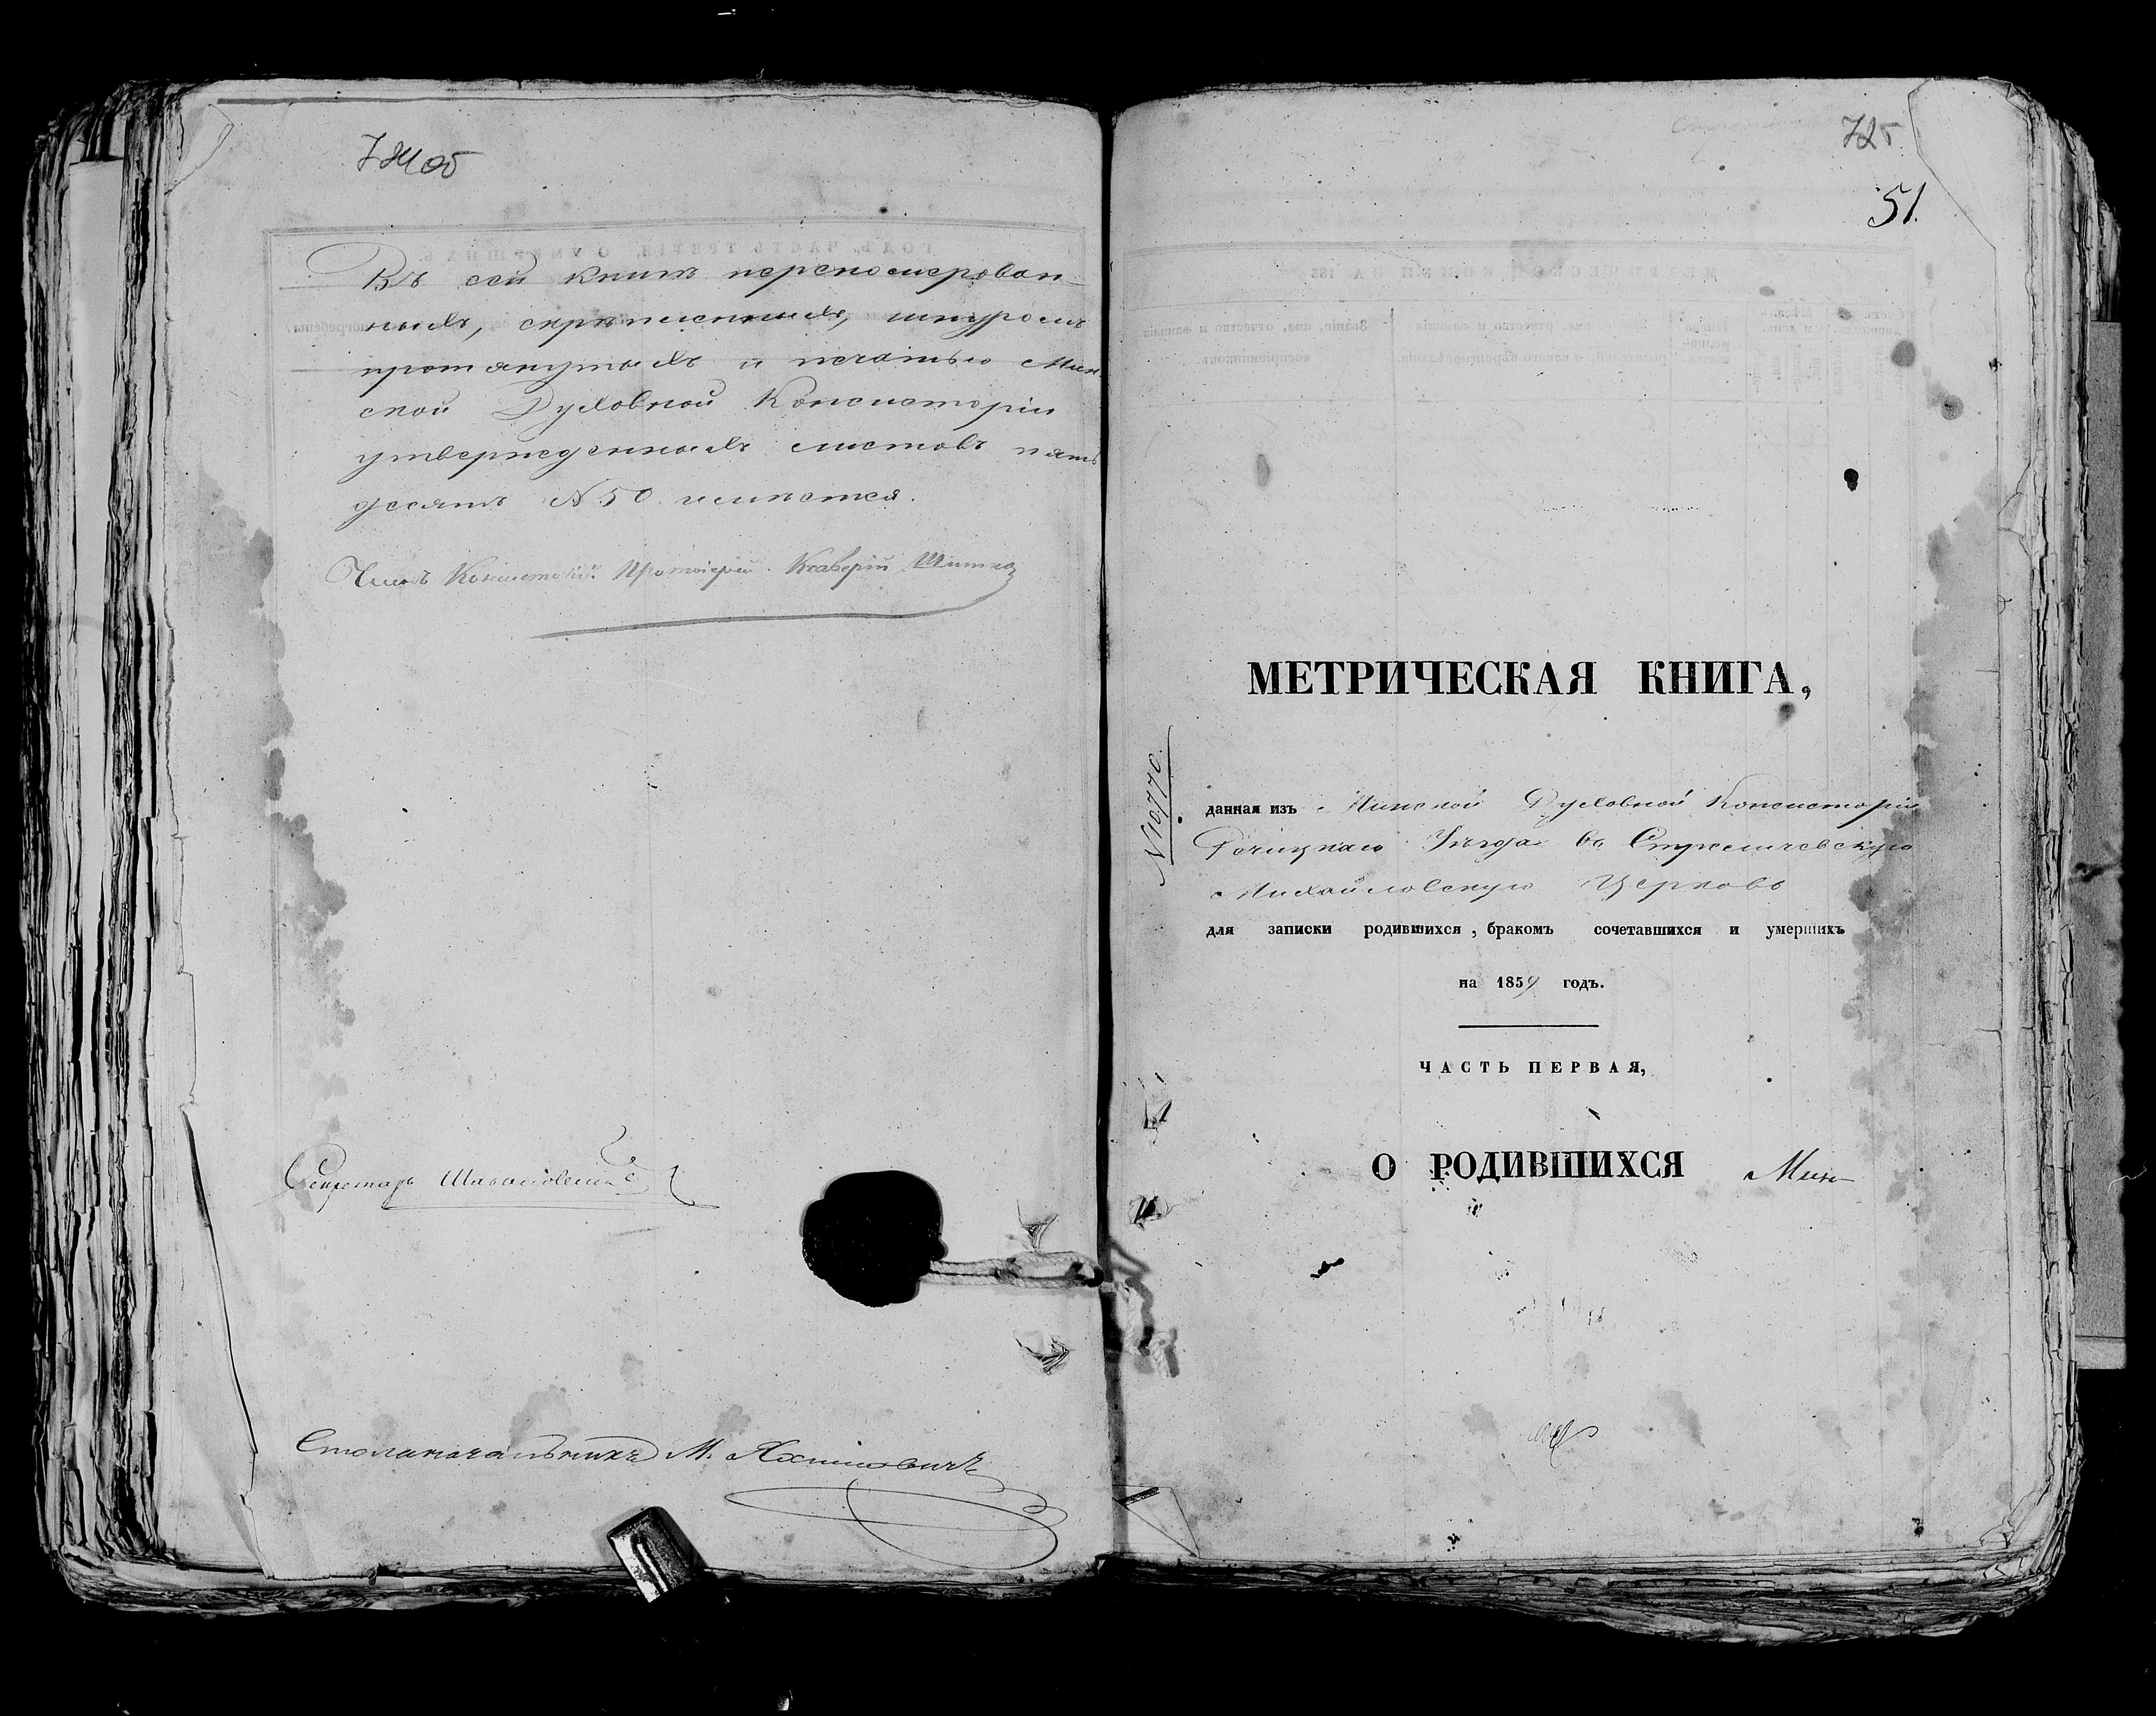 724 об
Въ сей книгѣ переномерован-
ныхъ, скрѣпленныхъ, шнуромъ
протянутыхъ и печатью Мин-
ской Духовной Консисторіи
утвержденныхъ листовъ пять
десятъ N 50 имѣется.
Членъ Консисторіи Протоіерей
Секретарь
Столоначальникъ М.
725
51.
МЕТРИЧЕСКАЯ КНИГА,
N 10770.
данная изъ Минской Духовной Консисторіи
Рѣчицкаго Уѣзда въ Стреличевскую
Михайловскую Церковь
для записки родившихся, бракомъ сочетавшихся и умершихъ
на 1859 годъ.
ЧАСТЬ ПЕРВАЯ,
О РОДИВШИХСЯ Мин-